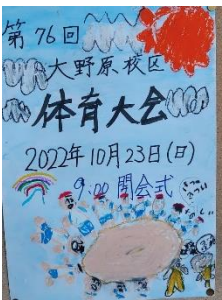 第76回
大野原校区
体育大会
2022年10月23日(日)
9:00 開会式